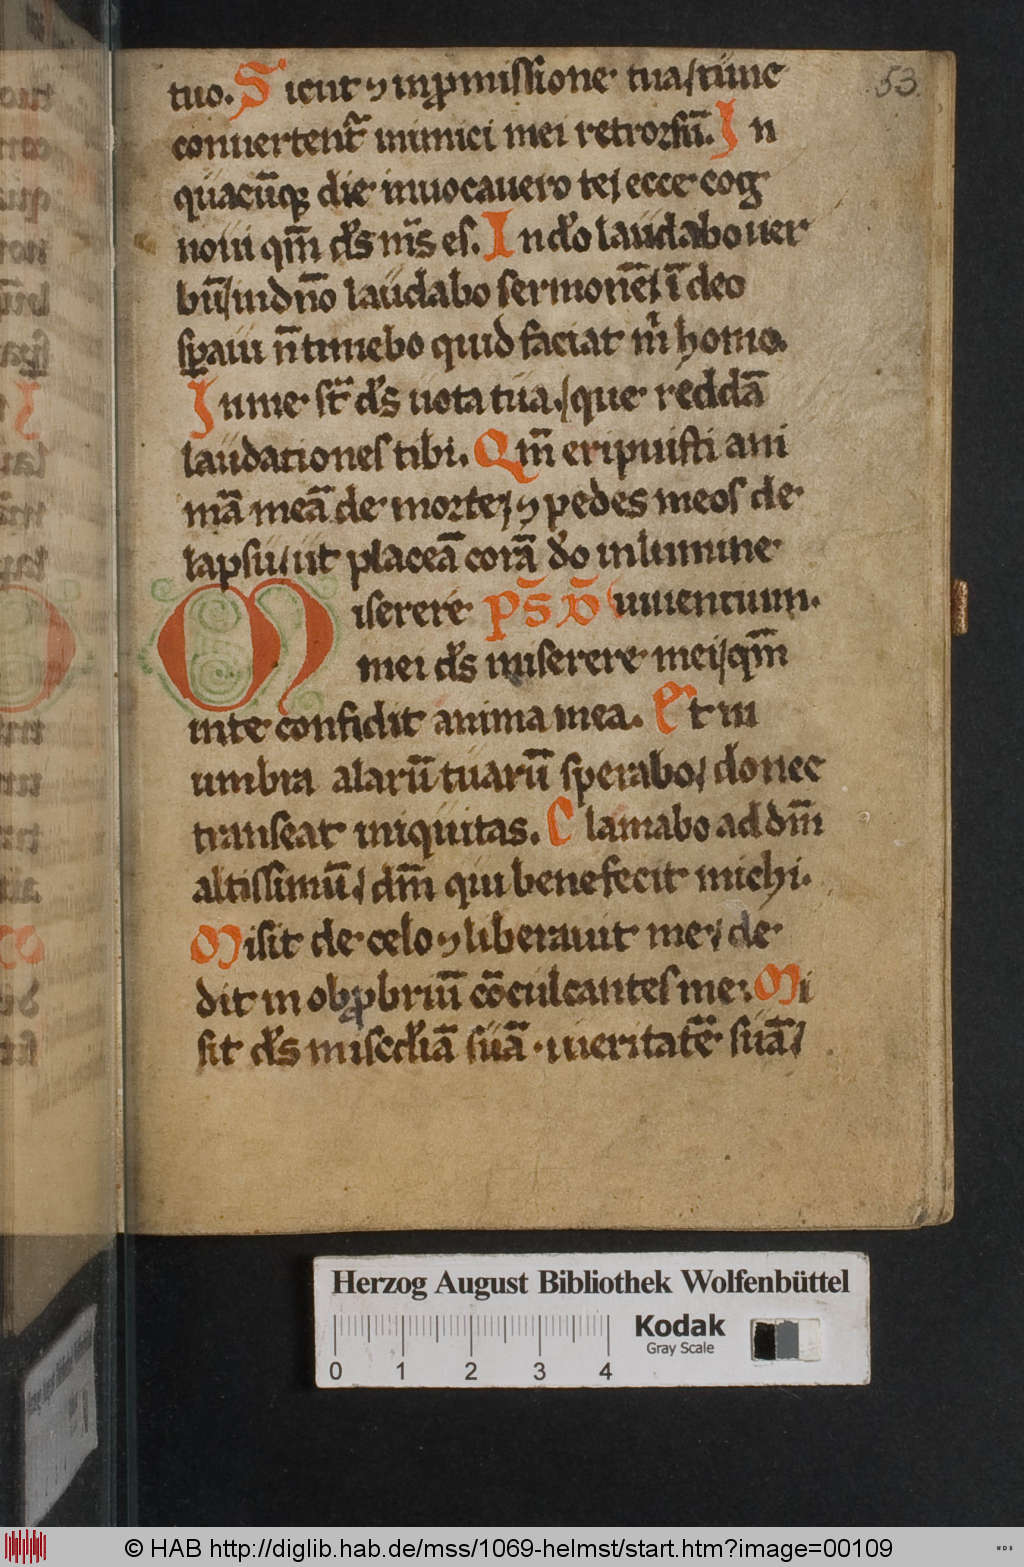 53
tuo. Sicut ⁊ in ꝓmissione tua / tunc
conuertent᷑ inimici mei retrorsū. In
quacūq; die inuocauero te / ecce cog
noui qm̄ ds̄ ms̄ es. In dō laudabo uer
bū / in dnō laudabo sermonē / ī deo
sꝑaui n̄ timebo quid faciat m̄ homo.
In me st̄ ds̄ uota tua / que reddā
laudationes tibi. Qm̄ eripuisti ani
mā meā de morte / ⁊ pedes meos de
lapsu / ut placeā corā dō in lumine
Miserere ps̄ dd̄ uiuentium.
mei ds̄ miserere mei / qm̄
in te confidit anima mea. Et in
umbra alarū tuarū sperabo / donec
transeat iniquitas. Clamabo ad dm̄
altissimū / dm̄ qui benefecit michi.
Misit de celo ⁊ liberauit me / de
dit in obꝓbriū cōculcantes me. Mi
sit ds̄ miscd̄iā suā · ueritatē suā /
Herzog August Bibliothek Wolfenbüttel
0 1 2 3 4
Kodak
Gray Scale
© HAB http://diglib.hab.de/mss/1069-helmst/start.htm?image=00109